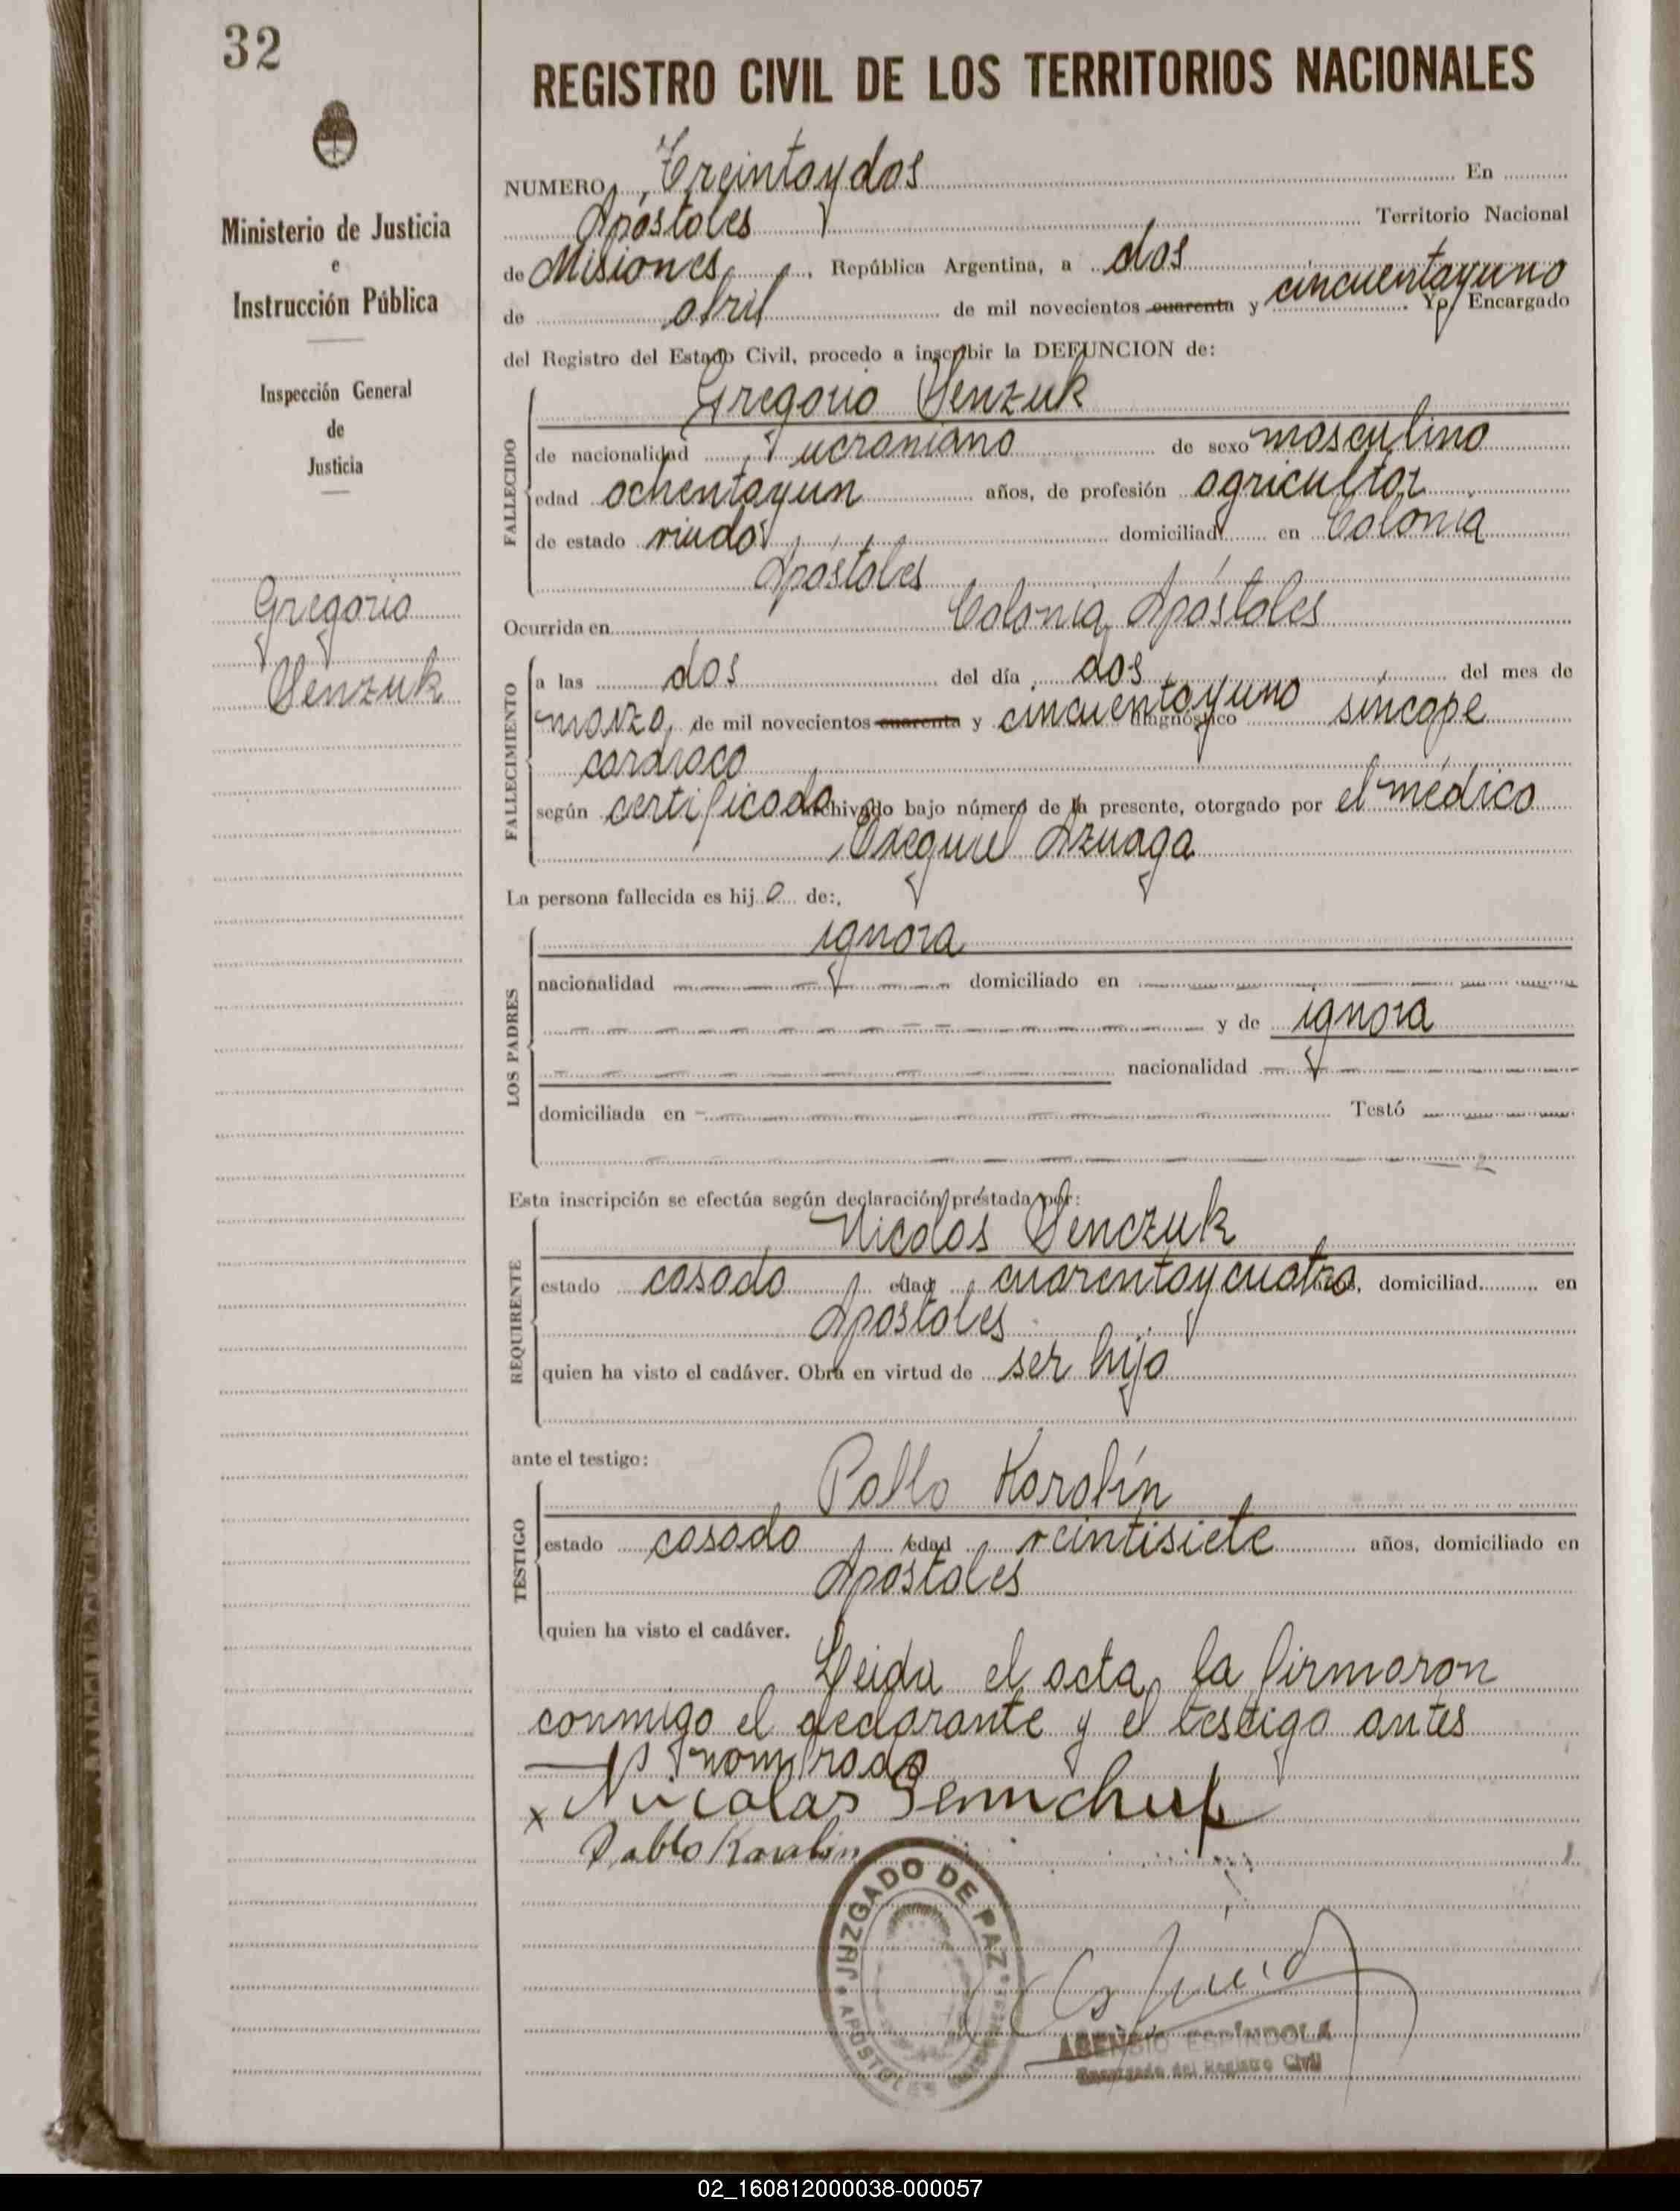 32
REGISTRO CIVIL DE LOS TERRITORIOS NACIONALES
Ministerio de Justicia
e
Instrucción Pública
Inspección General
de
Justicia
Gregorio
Senzuk
NUMERO Treintaydos En
Apóstoles Territorio Nacional
de Misiones, República Argentina, a dos
de abril de mil novecientos cuarenta y cincuentayuno Yo, Encargado
del Registro del Estado Civil, procedo a inscribir la DEFUNCION de:
FALLECIDO
Gregorio Senzuk
de nacionalidad ucraniano de sexo masculino
edad ochentayun años, de profesión agricultor
de estado viudo domiciliad en Colonia
Apóstoles
Ocurrida en Colonia Apóstoles
FALLECIMIENTO
a las dos del día dos del mes de
marzo, de mil novecientos cuarenta y cincuentayuno diagnóstico síncope
cardiaco
según certificado archivado bajo número de la presente, otorgado por el médico
Exequiel Azuaga
La persona fallecida es hijo de:
LOS PADRES
ignora
nacionalidad domiciliado en
y de ignora
nacionalidad
domiciliada en Testó
Esta inscripción se efectúa según declaración prestada por:
REQUIRENTE
Nicolas Senczuk
estado casado edad cuarentaycuatro años, domiciliad en
Apóstoles
quien ha visto el cadáver. Obra en virtud de ser hijo
ante el testigo:
TESTIGO
Pablo Korabín
estado casado edad veintisiete años, domiciliado en
Apóstoles
quien ha visto el cadáver.
Leida el acta, la firmaron
conmigo el declarante y el testigo antes
nombrado
x Nicolas Semchuk
Pablo Korabin
JUZGADO DE PAZ
APOSTOLES
ASENSIO ESPÍNDOLA
Encargado del Registro Civil
02_160812000038-000057